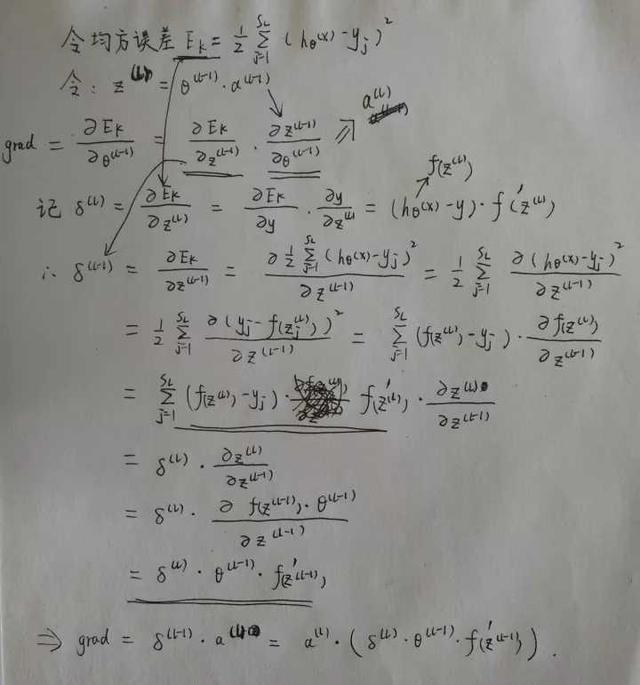 令均方误差 E_k = 1/2 Σ_{j=1}^{S_L} (h_θ(x) - y_j)²
令: z^(L) = θ^(L-1) · a^(L-1)
grad = ∂E_k/∂θ^(L-1) = ∂E_k/∂z^(L-1) · ∂z^(L-1)/∂θ^(L-1) ⇒ a^(L)
f(z^(L))
记 δ^(L) = ∂E_k/∂z^(L) = ∂E_k/∂y · ∂y/∂z^(L) = (h_θ(x) - y) · f'(z^(L))
∴ δ^(L-1) = ∂E_k/∂z^(L-1) = ∂ 1/2 Σ_{j=1}^{S_L} (h_θ(x) - y_j)² / ∂z^(L-1) = 1/2 Σ_{j=1}^{S_L} ∂(h_θ(x) - y_j)²/∂z^(L-1)
= 1/2 Σ_{j=1}^{S_L} ∂(y_j - f(z_j^(L)))²/∂z^(L-1) = Σ_{j=1}^{S_L} (f(z^(L)) - y_j) · ∂f(z^(L))/∂z^(L-1)
= Σ_{j=1}^{S_L} (f(z^(L)) - y_j) · f'(z^(L)) · ∂z^(L)/∂z^(L-1)
= δ^(L) · ∂z^(L)/∂z^(L-1)
= δ^(L) · ∂ f(z^(L-1)) · θ^(L-1) / ∂z^(L-1)
= δ^(L) · θ^(L-1) · f'(z^(L-1))
⇒ grad = δ^(L-1) · a^(L) = a^(L) · (δ^(L) · θ^(L-1) · f'(z^(L-1))).